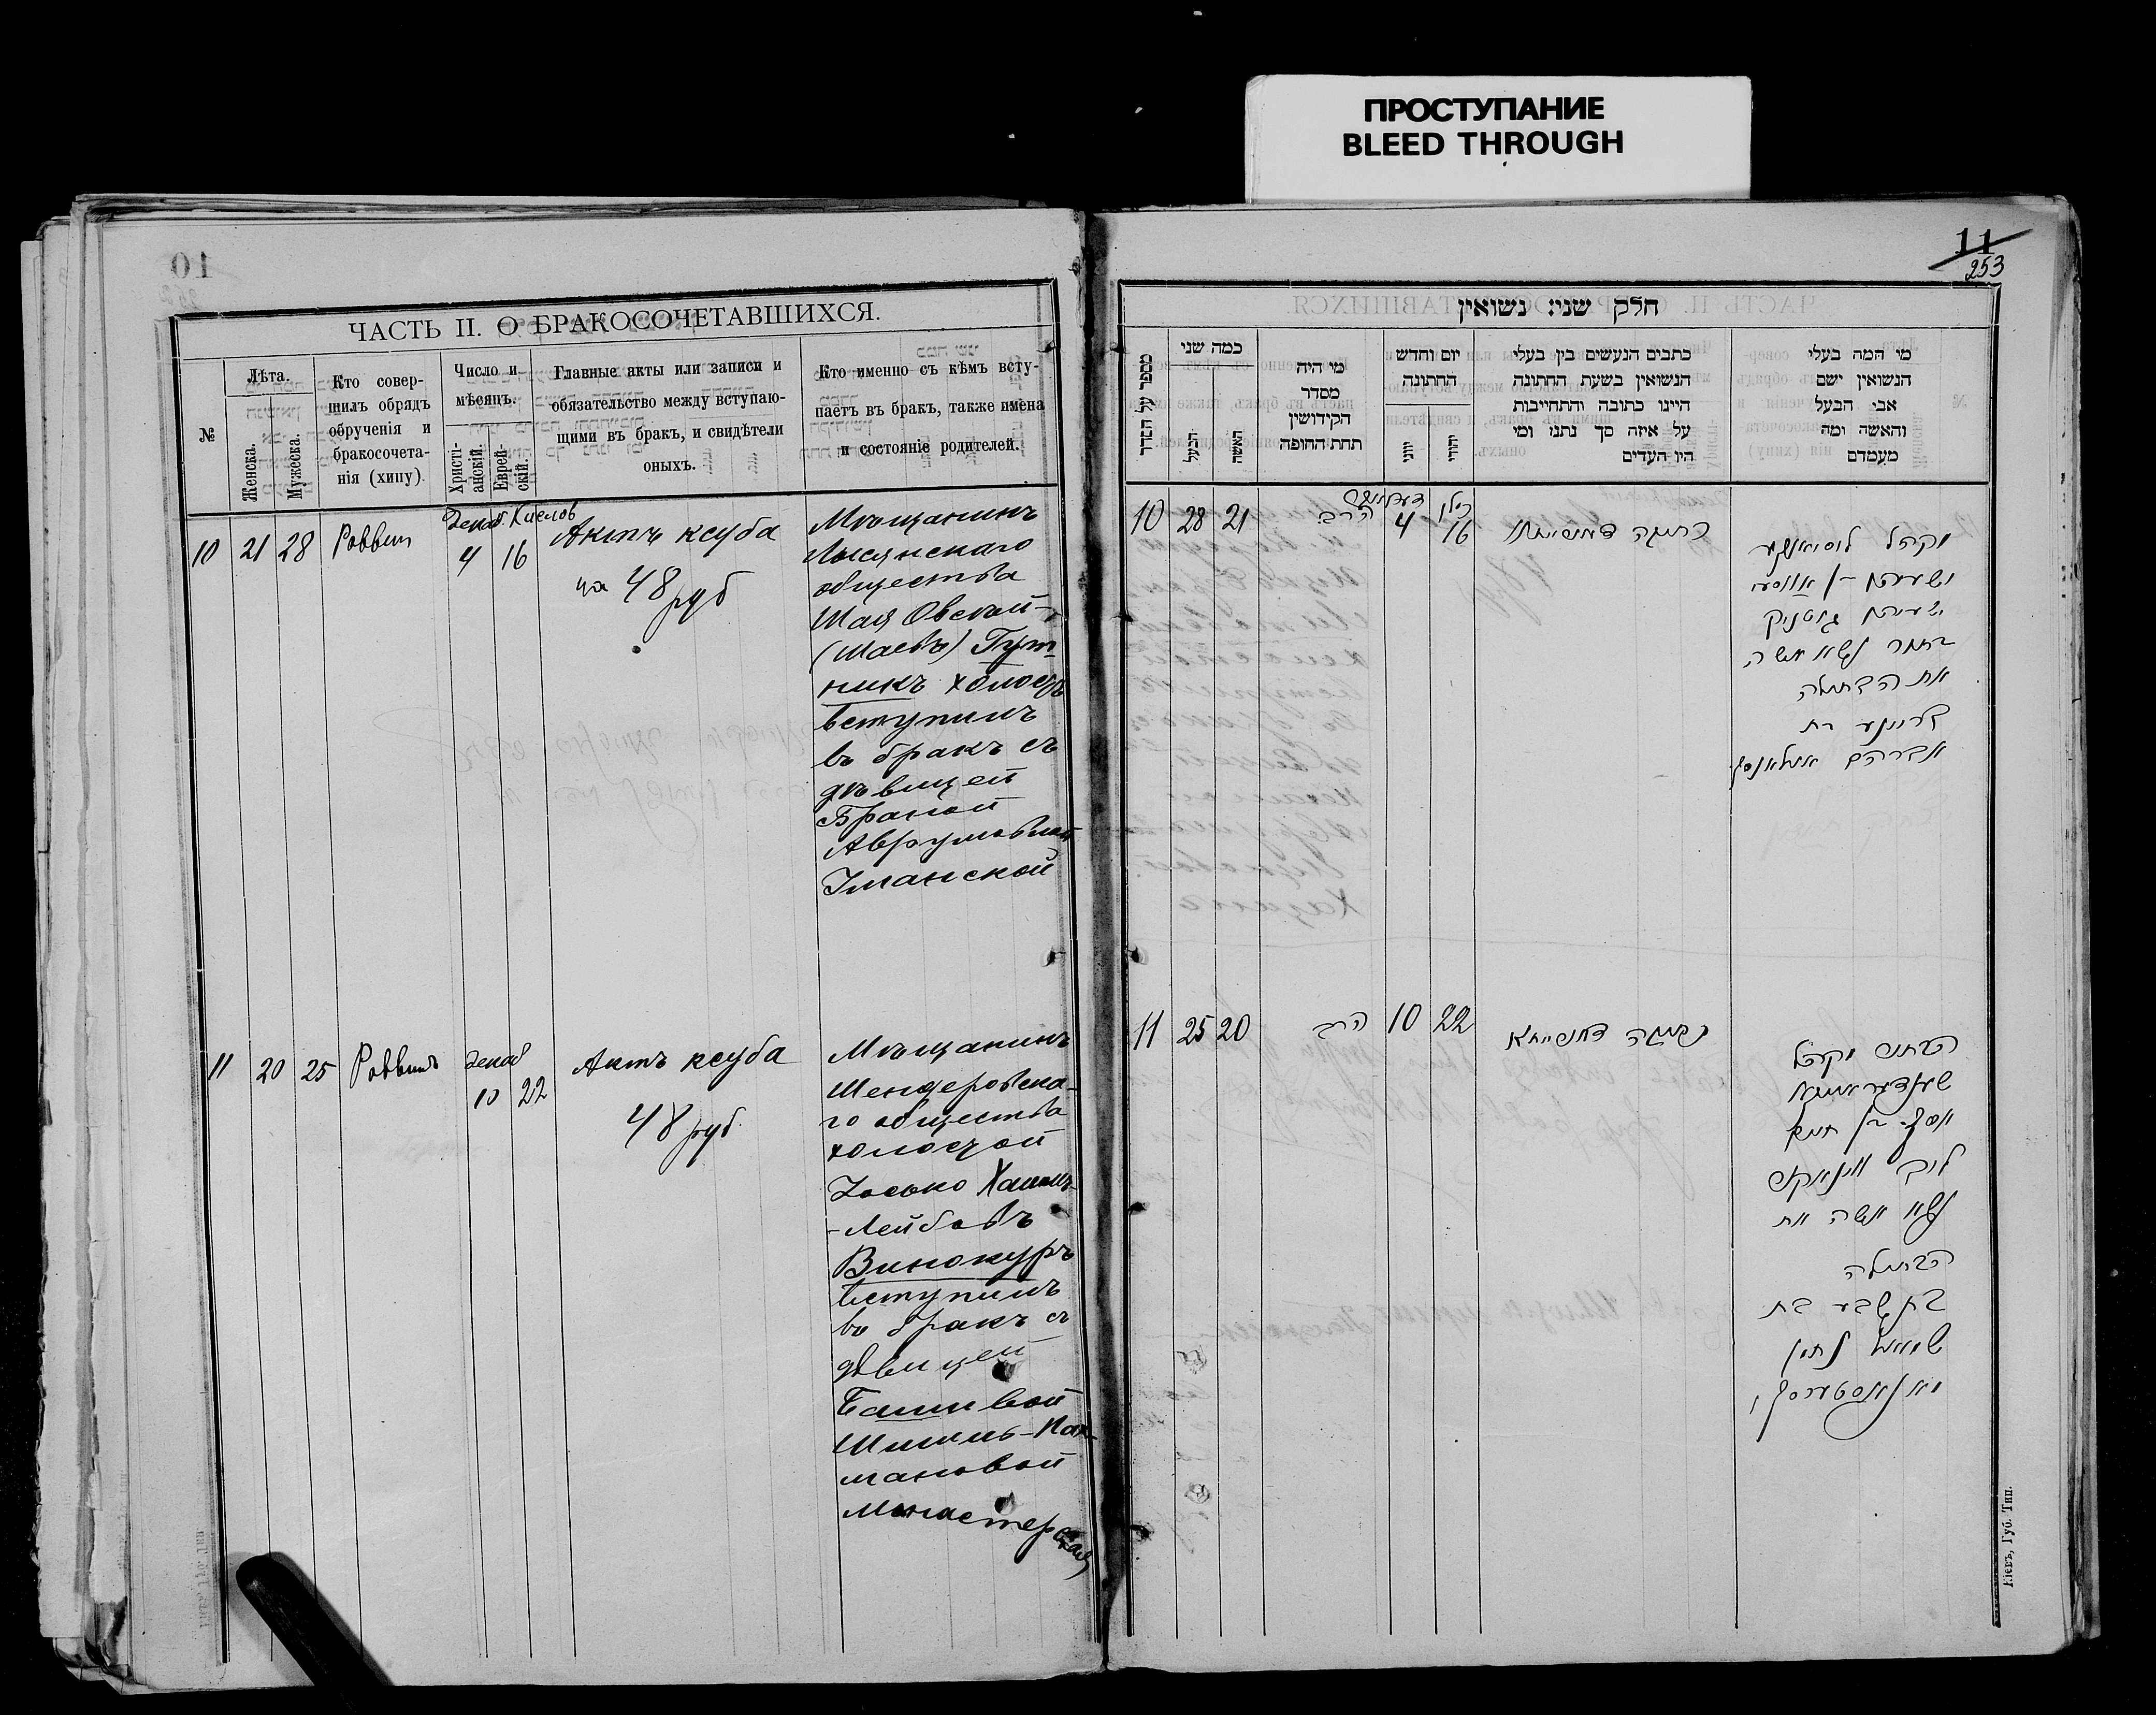 ПРОСТУПАНИЕ
BLEED THROUGH
ЧАСТЬ II. О БРАКОСОЧЕТАВШИХСЯ.
№
Лѣта.
Женска.
Мужеска.
Кто совер-
шилъ обрядъ
обрученія и
бракосочета-
нія (хипу).
Число и
мѣсяцъ.
Христі-
анскій.
Еврей-
скій.
Главные акты или записи и
обязательство между вступаю-
щими въ бракъ, и свидѣтели
оныхъ.
Кто именно съ кѣмъ всту-
паетъ въ бракъ, также имена
и состояніе родителей.
10 21 28 Раввин
Декаб. Кислов
4 16
Актъ ксуба
на 48 руб
Мѣщанинъ
Лысянскаго
общества
Шая Овсей-
(Шаевъ) Гут
никъ холост
вступилъ
въ бракъ съ
дѣвицей
Браной
Аврумовной
Уманской
11 20 25 Раввинъ
декаб
10 22
Актъ ксуба
48 руб.
Мѣщанинъ
Шендеровска-
го общества
холостой
Іосько Хаимъ-
-Лейбовъ
Винокуръ
вступилъ
въ бракъ съ
дѣвицей
Башивой
-мановой
11
253
חלק שני: נשואין
מספר על הסדר
כמה שני
הבעל
האשה
מי היה
מסדר
הקידושין
תחת החופה
יום וחדש
החתונה
יווני
יהודי
כתבים הנעשים בין בעלי
הנשואין בשעת החתונה
היינו כתובה והתחייבות
על איזה סך נתנו ומי
היו העדים
מי המה בעלי
הנשואין ושם
אבי הבעל
והאשה ומה
מעמדם
10 28 21
הרב
4
כסלו
16
נשא אשה
את הבתולה
אברהם
11 25 20
הרב
10 22
יוסף בן חיים
נשא אשה את
הבתולה
בת שבע בת
Кіевъ, Губ. Тип.